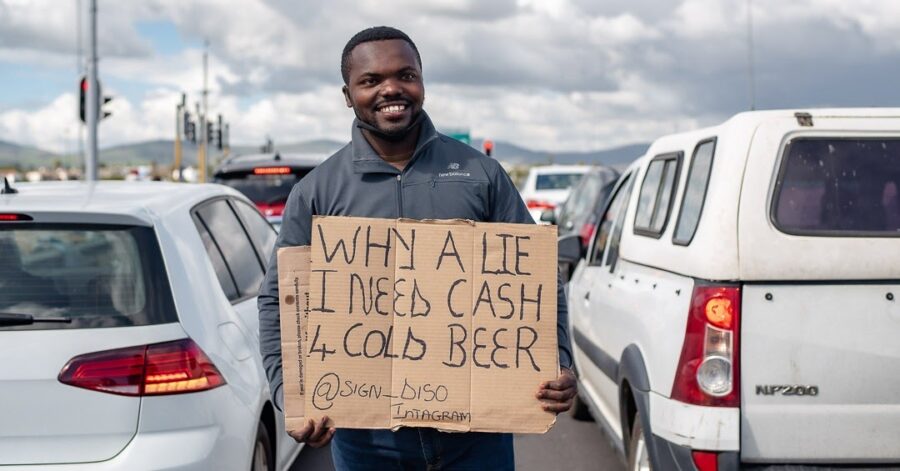 new balance
WHY A LIE
I NEED CASH
4 COLD BEER
@SIGN_DISO
INTAGRAM
NP200